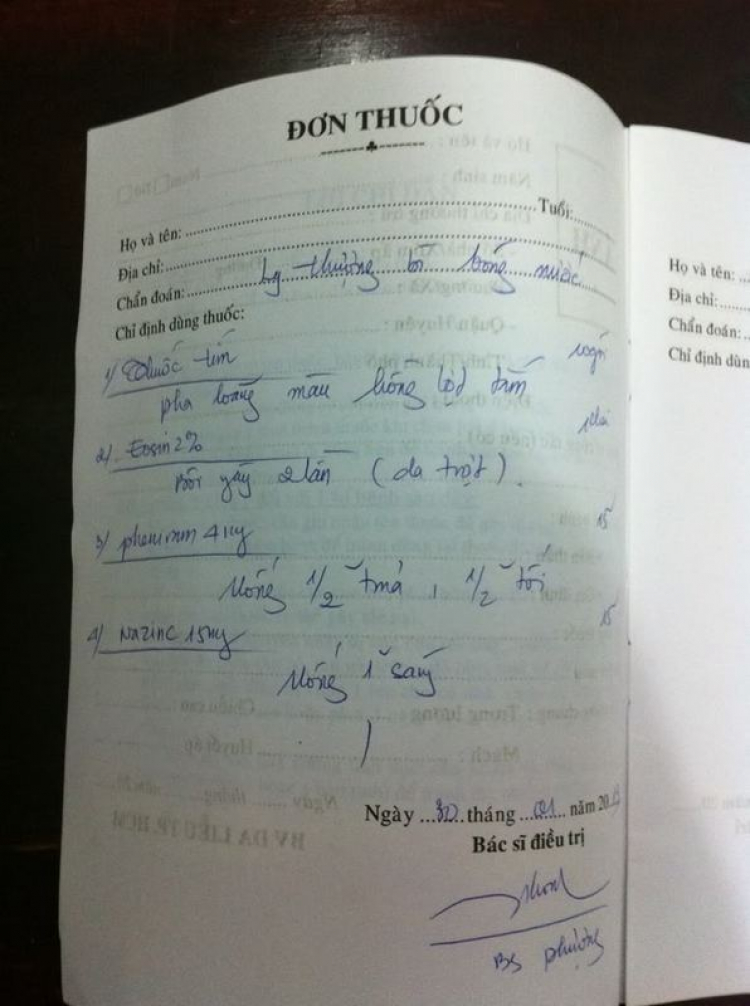 ĐƠN THUỐC
Họ và tên: Tuổi:
Địa chỉ:
Chẩn đoán: Ly thượng bì bóng nước
Chỉ định dùng thuốc:
1/ Thuốc tím 1 gói
pha loãng màu hồng lợt tắm
2/ Eosin 2% 1 chai
Bôi ngày 2 lần (da trợt).
3/ pheniram 4mg 15
Uống 1/2 v trưa, 1/2 v tối
4/ Nazinc 15mg 15
Uống 1 v sáng
Ngày 30 tháng 01 năm 20
Bác sĩ điều trị
BS Phượng
Họ và tên:
Địa chỉ:
Chẩn đoán:
Chỉ định dùn